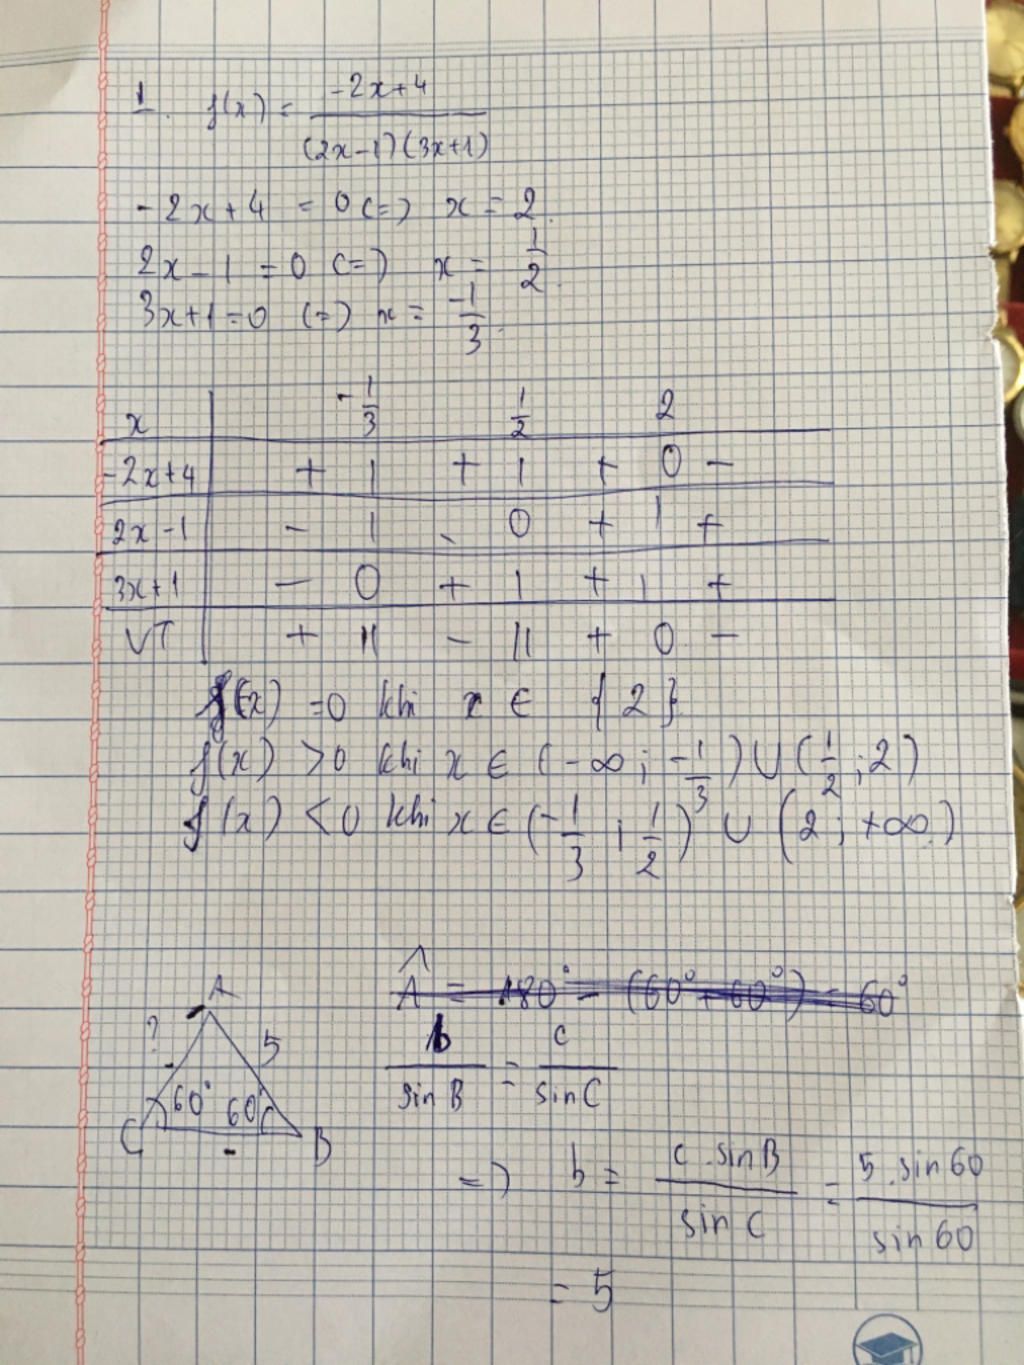 1. f(x) = (-2x+4)/((2x-1)(3x+1))
-2x+4 = 0 (=) x = 2.
2x-1 = 0 (=) x = 1/2.
3x+1=0 (=) x = -1/3.
x -1/3 1/2 2
-2x+4 + | + | + 0 -
2x-1 - | - 0 + | +
3x+1 - 0 + | + | +
VT + || - || + 0 -
f(x) =0 khi x ∈ {2}
f(x) >0 khi x ∈ (-∞; -1/3) ∪ (1/2; 2)
f(x) <0 khi x ∈ (-1/3; 1/2) ∪ (2; +∞)
Â = 180° - (60° + 60°) = 60°
A
? 5
60° 60°
C B
b/sin B = c/sin C
=) b = c.sin B/sin C = 5.sin 60/sin 60
= 5